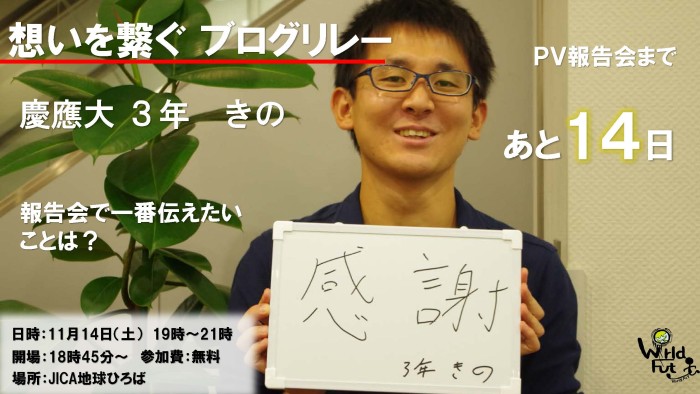 想いを繋ぐ ブログリレー
PV報告会まで
あと14日
慶應大 3年 きの
報告会で一番伝えたい
ことは？
感謝
3年 きの
日時：11月14日（土） 19時～21時
開場：18時45分～ 参加費：無料
場所：JICA地球ひろば
World
Fut